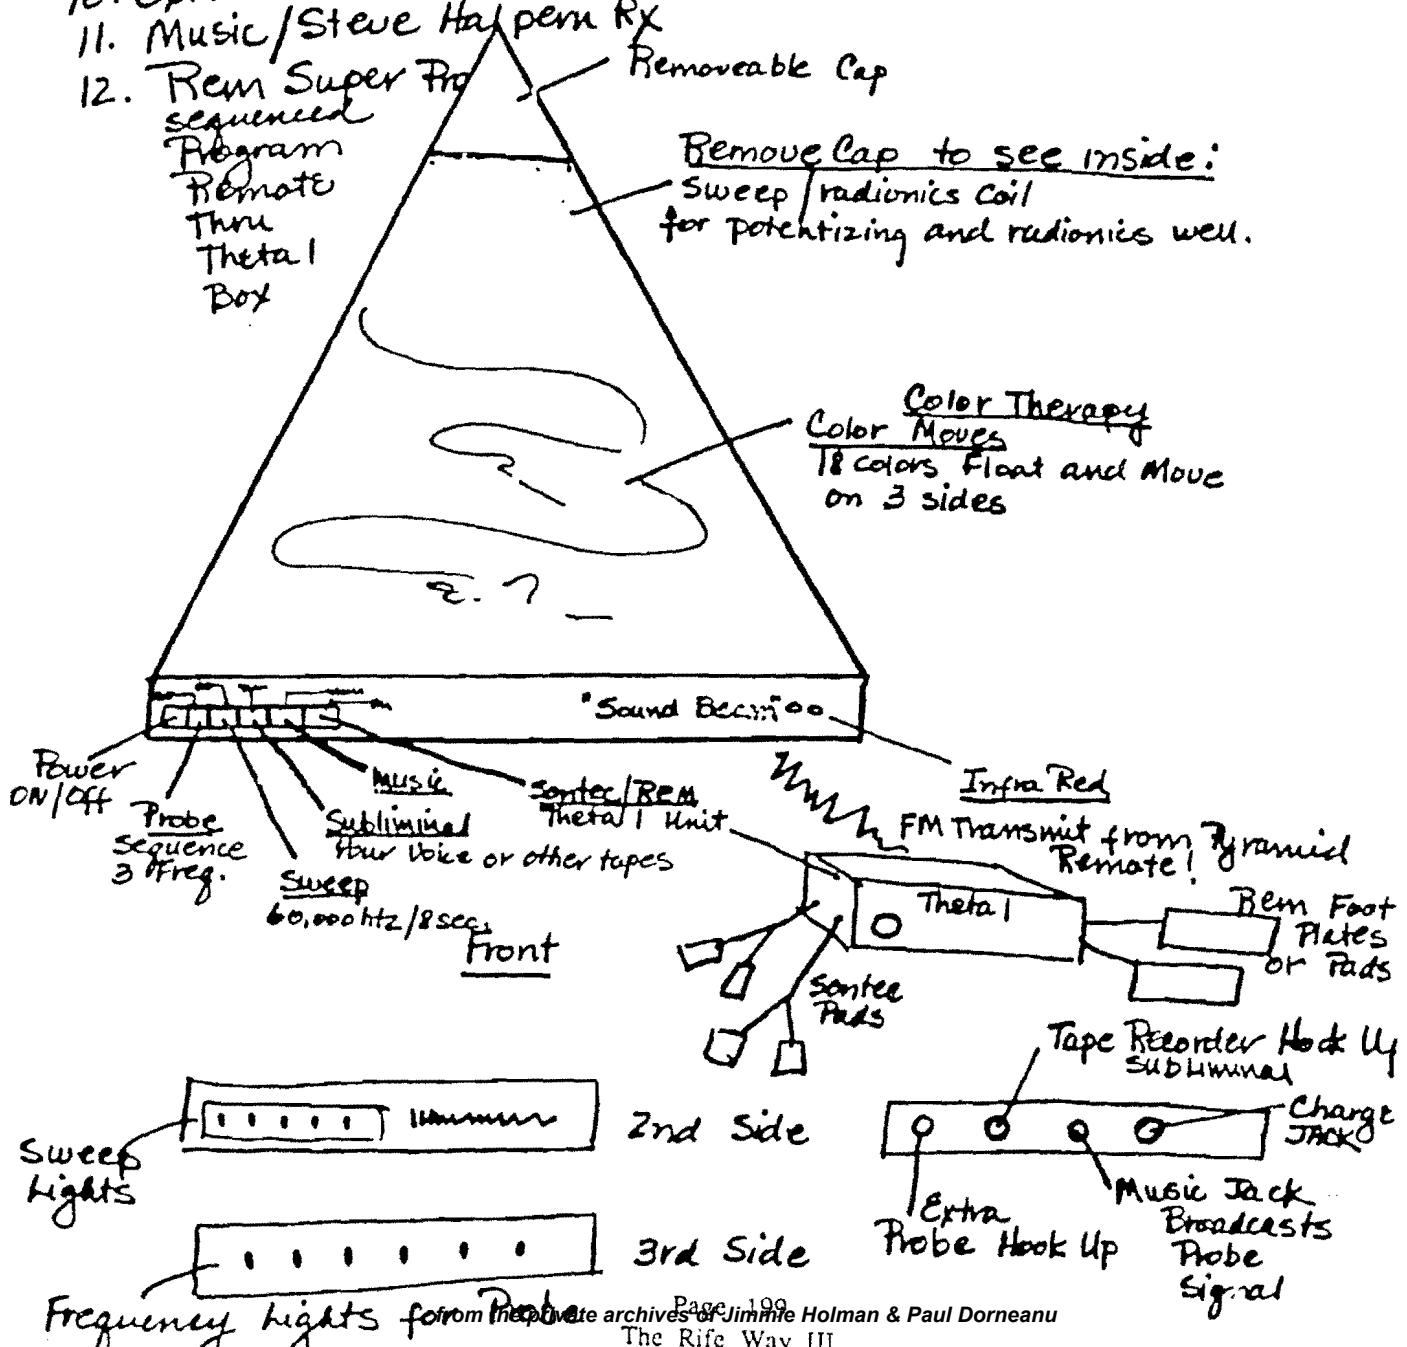 11. Music/Steve Halpern Rx
12. Rem Super Pro
sequenced
Program
Remote
Thru
Theta 1
Box
Removeable Cap
Remove Cap to see inside:
Sweep/radionics Coil
for potentizing and radionics well.
Color Therapy
Color Moves
18 colors Float and Move
on 3 sides
"Sound Beam"
Power
ON/Off
Probe
Sequence
3 Freq.
Sweep
60,000 htz/8sec.
Subliminal
Your Voice or other tapes
Music
Sontec/REM
Theta 1 Unit
Infra Red
FM Transmit from Pyramid
Remote!
Front
Theta 1
Rem Foot
Plates
or Pads
Sontec
Pads
Sweep
Lights
2nd Side
Tape Recorder Hook Up
Subliminal
Charge
JACK
Extra
Probe Hook Up
Music Jack
Broadcasts
Probe
Signal
3rd Side
Frequency Lights for Probe
Page 199
from the private archives of Jimmie Holman & Paul Dorneanu
The Rife Way III